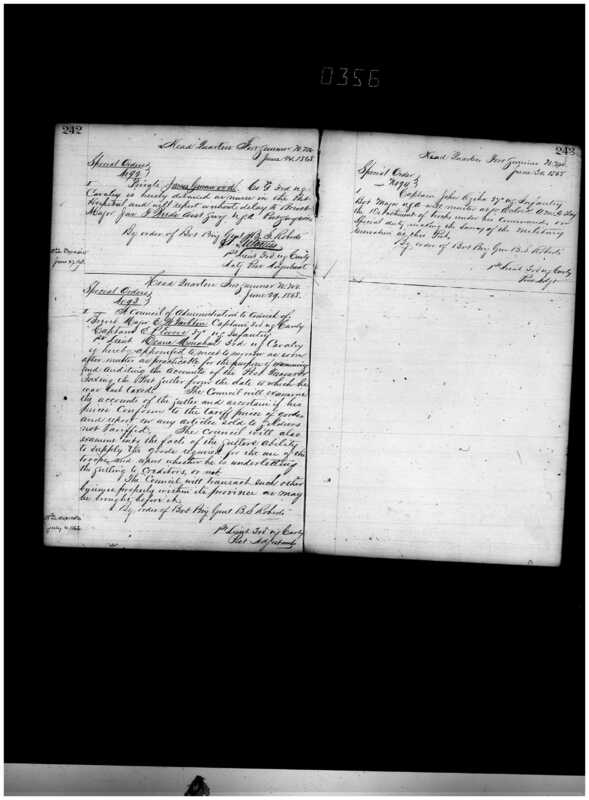 0356
242
Head Quarters Fort Sumner N.M.
June 24. 1868
Special Orders
No 92
I Private James Greenwood Co G 3rd U.S.
Cavalry is hereby detailed as nurse in the Post
Hospital and will report without delay to Brevet
Major Surg U.S.A. Post Surgeon
By order of Bvt Brig Genl B. S. Roberts
1st Lieut 3rd U.S. Cavly
Actg Post Adjutant
Head Quarters Fort Sumner N.M.
June 29. 1868.
Special Orders
No 93
I A Council of Administration to consist of
Brevet Major Captain 3rd U.S. Cavly
Captain 37" U.S. Infantry
1st Lieut Deane Monahan 3rd U.S. Cavalry
is hereby appointed to meet to morrow as soon
after muster as practicable for the purpose of examining
and Auditing the accounts of the Post Treasurer
Taxing the Post Sutler from the date to which he
was last taxed. The Council will examine
the accounts of the Sutler and ascertain if his
prices conform to the tariff price of goods
and report on any articles sold to soldiers
not Tariffed. The Council will also
examine into the fact of the Sutlers ability
to supply the goods required for the use of the
troops and upon whether he is underletting
the Sutling to Creditors, or not.
The Council will transact such other
business properly within its province as may
be brought before it.
By order of Bvt Brig Genl B. S. Roberts
1st Lieut 3rd U.S. Cavly
Post Adjutant
243
Head Quarters Fort Sumner N.M.
June 30. 1868
Special Order
No 94
I Captain John 37" U.S. Infantry
Bvt Major U.S.A. will muster
the Detachment of troops under his command, on
Special duty making the Survey of the Military
Reservation at this Post.
By order of Bvt Brig Gen B. S. Roberts
1st Lieut 3rd U.S. Cavly
Post Adjt